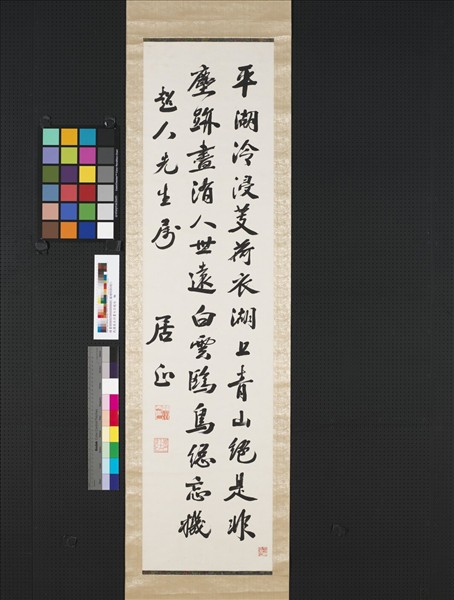 平湖冷浸芰荷衣湖上青山絕是非
塵跡盡消人世遠白雲鷗鳥總忘機
超人先生屬 居正